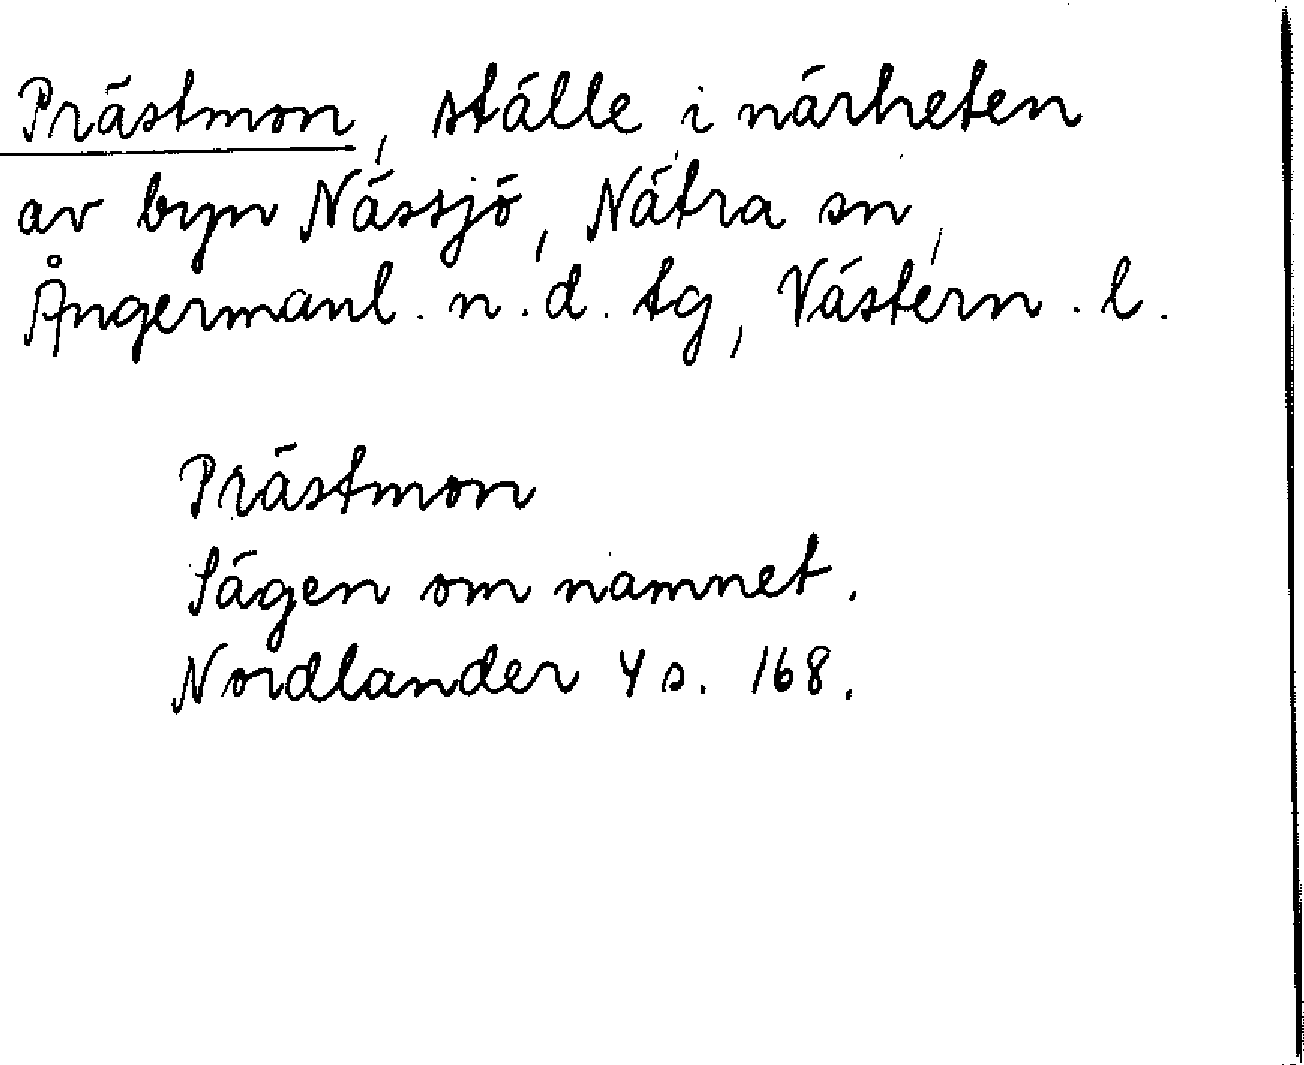 Prästmon, ställe i närheten
av byn Nässjö, Nätra sn,
Ångermanl. n. d. tg, Västern. l.
Prästmon
Sägen om namnet.
Nordlander 4 s. 168.